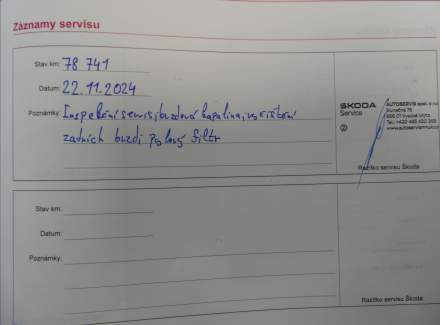 Záznamy servisu
Stav km: 78 741
Datum: 22.11.2024
Poznámky: Inspekční servis, brzdová kapalina, vyčištění
zadních brzd, pylový filtr
ŠKODA
Service
AUTOSERVIS spol. s r.o.
Razítko servisu Škoda
Stav km:
Datum:
Poznámky:
Razítko servisu Škoda